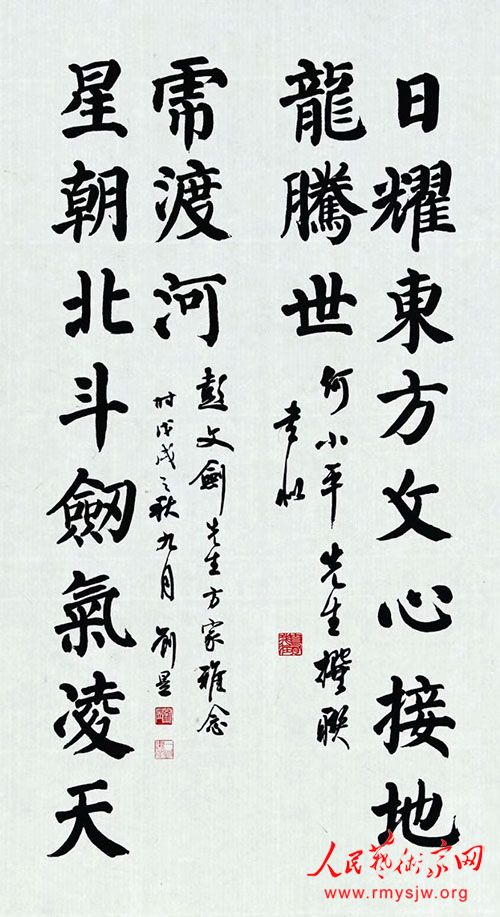 日耀東方文心接地
龍騰世
何小平先生撰聯
書似
星朝北斗劒氣凌天
乕渡河
彭文劍先生方家雅念
时戊戌之秋九月 劉
人民藝術家网
www.rmysjw.org